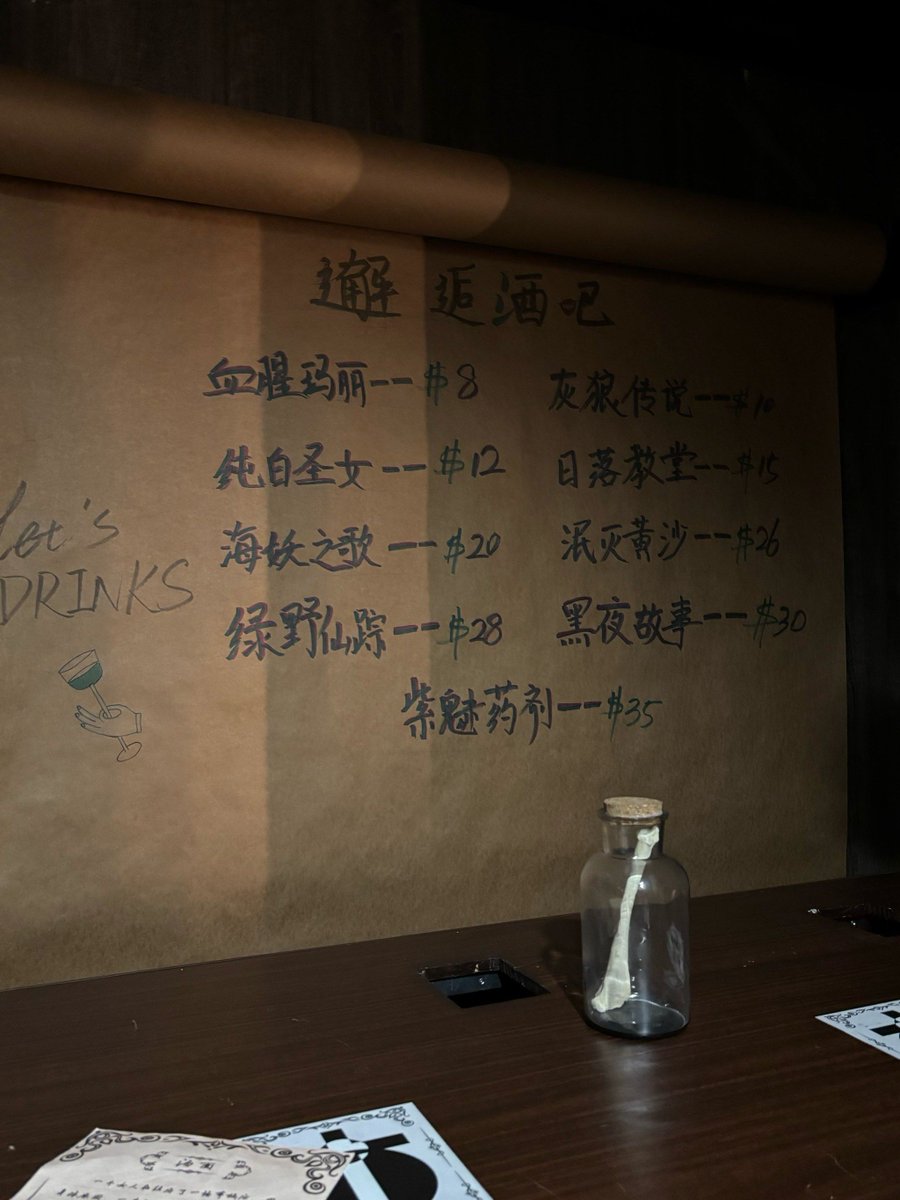 邂逅酒吧
血腥玛丽--$8
灰狼传说--$10
纯白圣女--$12
日落教堂--$15
海妖之歌--$20
泯灭黄沙--$26
绿野仙踪--$28
黑夜故事--$30
紫魅药剂--$35
Let's
DRINKS